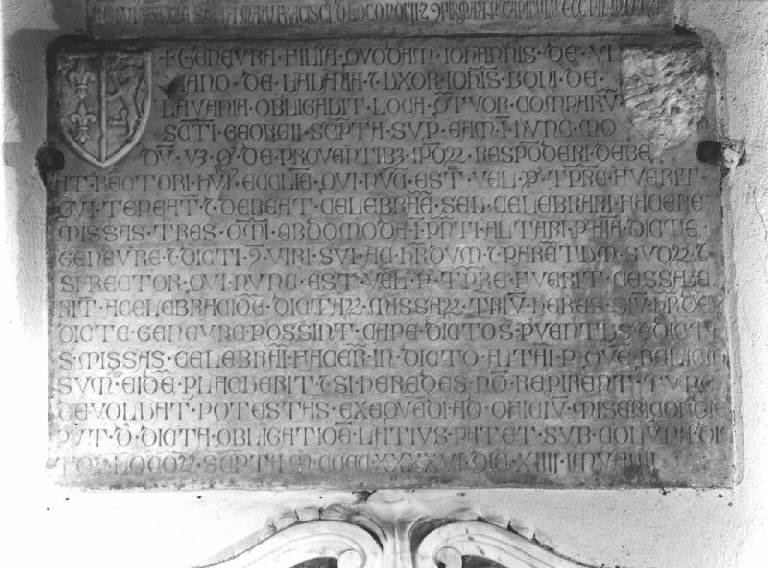 + GENEVRA · FILIA · QVODAM · IOHANNIS · DE · VI
· DE · LAVANIA · 7 · VXOR · IOHIS · BONI · DE ·
LAVANIA · OBLIGAVIT · LOCA · QTVOR · COMPARV̄ ·
SCTI · GEORGII · SCPTA · SVP · EAM · I · NVNC · MO
DV̄ · DE · PROVENTIB3 · RESPŌDERI · DEBE
AT · RECTORI · HVI · ECCLIE · QVI · NVC · EST · VEL · P · TPRE · FVERIT
QVI · TENEAT · 7 · DEBEAT · CELEBRARE · SEU · CELEBRARI · FACERE
MISSAS · TRES · OMI · EBDOMODA · I · PNTI · ALTARI · P · AIA · DICTE ·
GENEVRE · 7 · DICTI · 9 · VIRI · SVI · AC · HRDVM · 7 · PARĒTIVM · SVO24 · 7
SI · RECTOR · QVI · NVNC · EST · VEL · P · TPRE · FVERIT · CESSAVE
RIT · ACELEBRACIŌE · DICTA24 · MISSA24 · TRIV̄ · HERES · SIV · HRDES
DICTE · GENEVRE · POSSINT · CAPE · DICTOS · PVENTVS · 7 · DICTA
S · MISSAS · CELEBRARI · FACERE · IN · DICTO · ALTARI · P · QVE · RELIGIO
SVM · EIDE · PLACVERIT · 7 · SI · HEREDES · NŌ · REPIRENT · TVNC
DEVOLVAT · POTESTAS · EXEQVĒDI · AD · OFICIV̄ · MISERICORDIE
PVT · D · DICTA · OBLIGATIOE · LATIVS · PATET · SVB · COLVNA · DI
· LOCO24 · SCPTA · M · CCCC · XXXXVI · DIE · XIIII · IANVARII